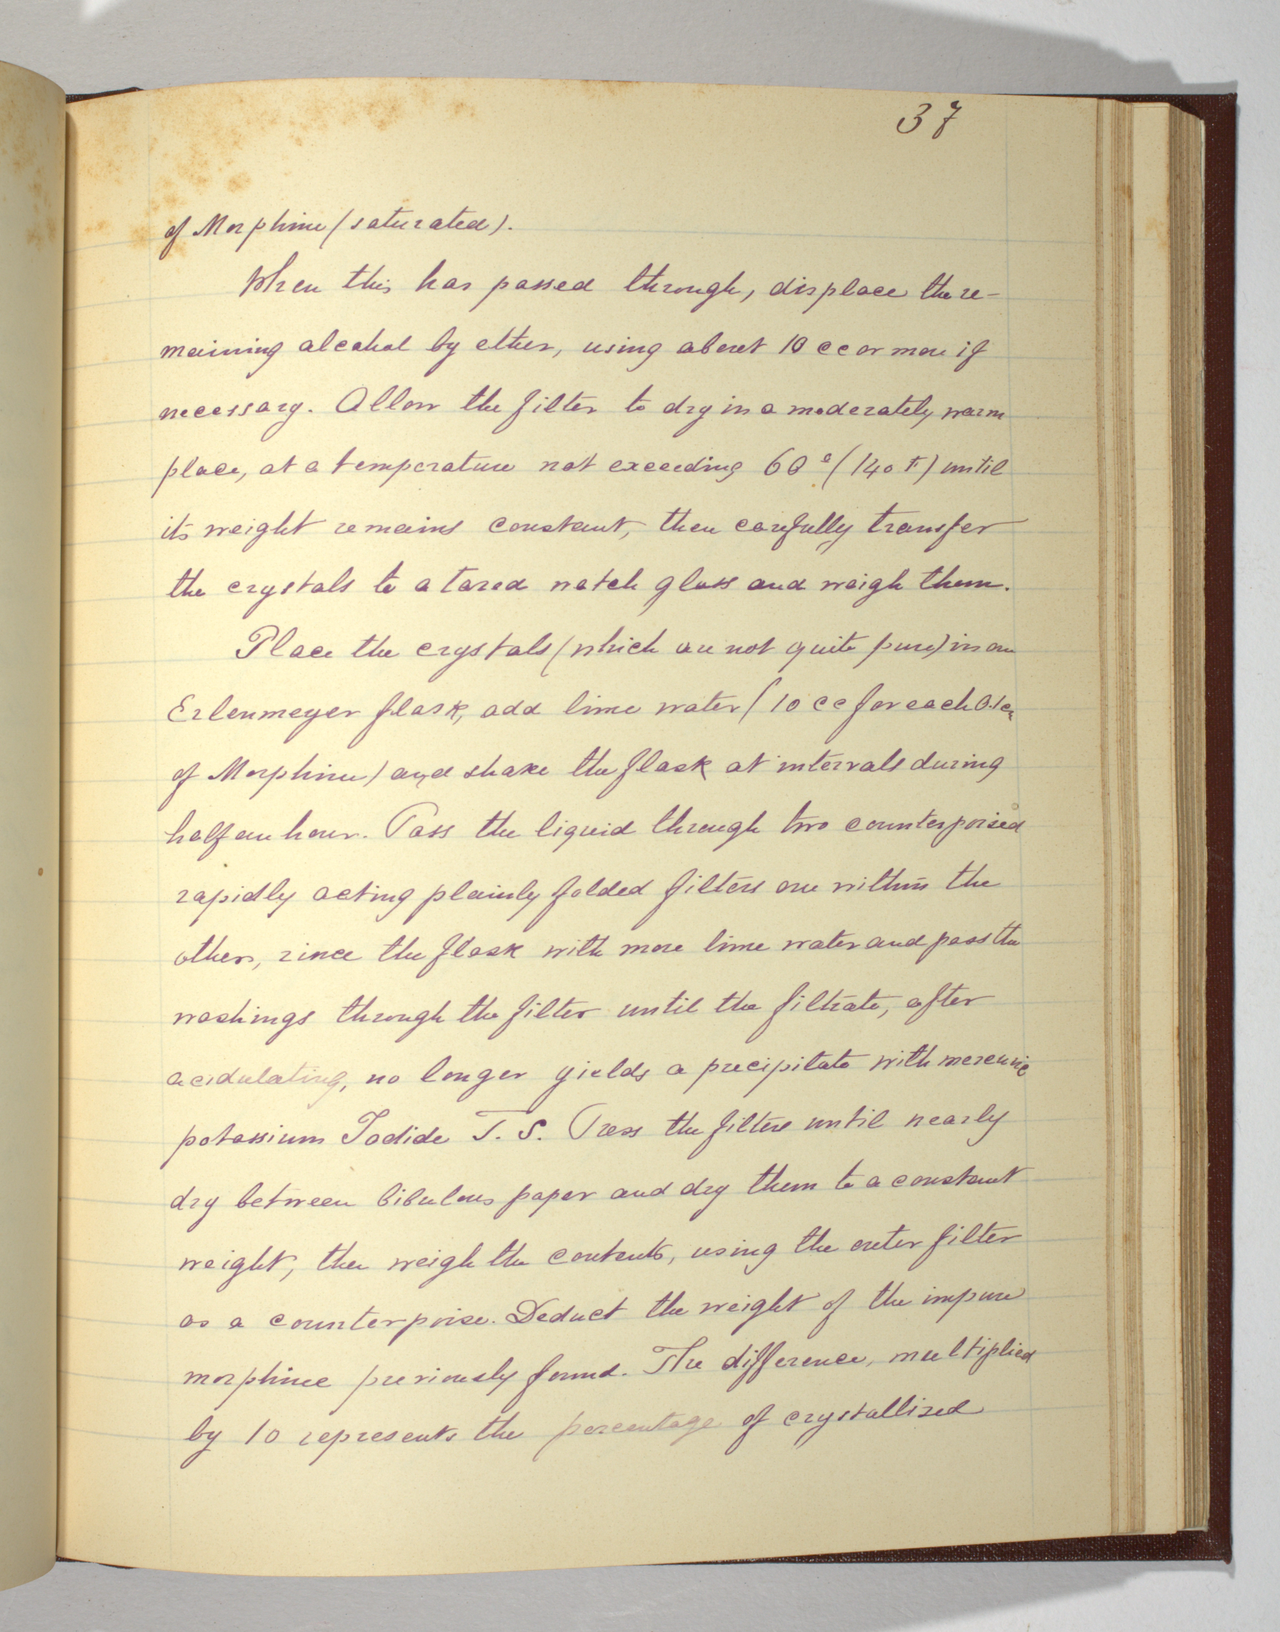 37
of Morphine (saturated).
When this has passed through, displace the re-
maining alcohol by ether, using about 10 cc or more if
necessary. Allow the filter to dry in a moderately warm
place, at a temperature not exceeding 60° (140 F) until
its weight remains constant, then carefully transfer
the crystals to a tared watch glass and weigh them.
Place the crystals (which are not quite pure) in an
Erlenmeyer flask, add lime water (10 cc for each 0.1
of Morphine) and shake the flask at intervals during
half an hour. Pass the liquid through two counterpoised
rapidly acting plainly folded filters one within the
other, rince the flask with more lime water and pass the
washings through the filter until the filtrate, after
acidulating, no longer yields a precipitate with mercuric
potassium Iodide T. S. Press the filters until nearly
dry between bibulous paper and dry them to a constant
weight, then weigh the contents, using the outer filter
as a counterpoise. Deduct the weight of the impure
morphine previously found. The difference, multiplied
by 10 represents the percentage of crystallized